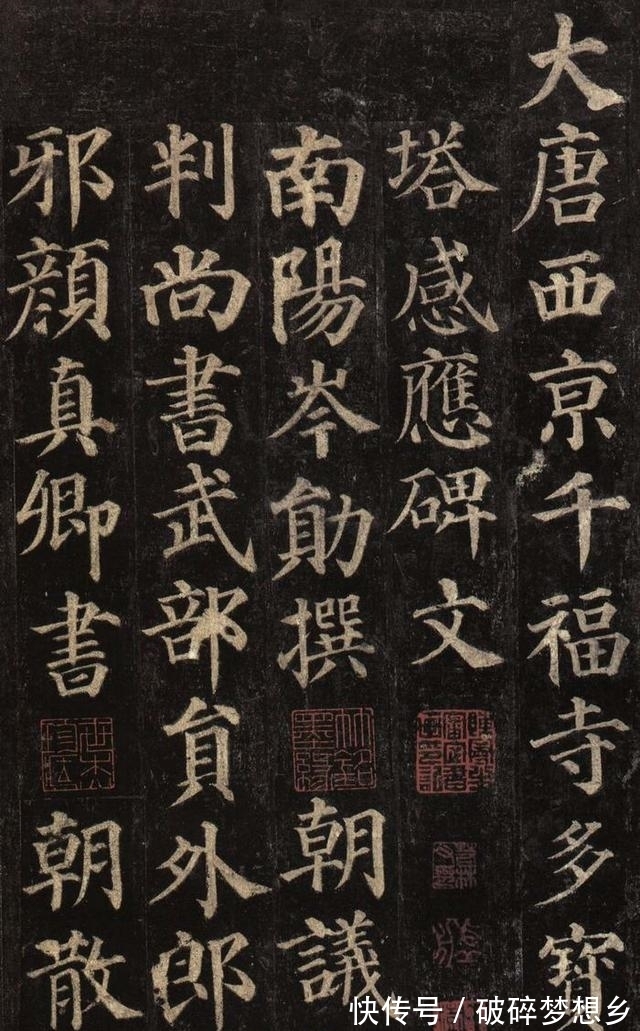 大唐西京千福寺多寶
塔感應碑文
南陽岑勛撰 朝議
判尚書武部員外郎
邪顏真卿書 朝散
快传号 / 破碎梦想乡